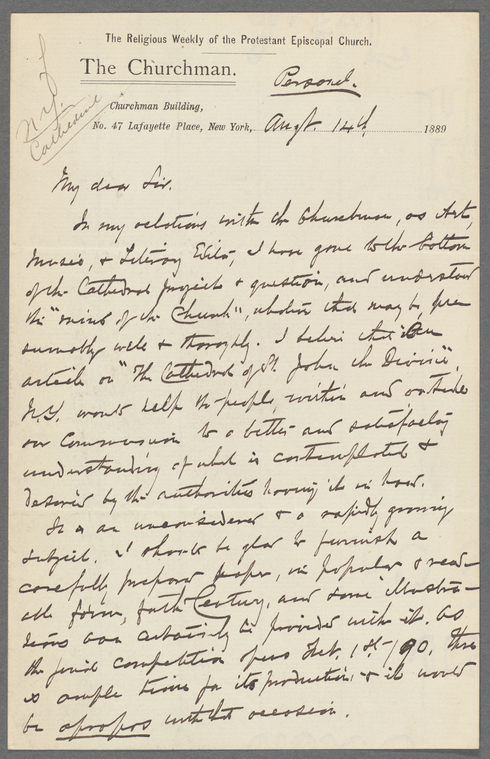 The Religious Weekly of the Protestant Episcopal Church.
The Churchman.
Personal.
N.Y.
Cathedral
Churchman Building,
No. 47 Lafayette Place, New York, Augt. 14th 1889
My dear Sir.
In my relations with the Churchman, as Art,
Music, & Literary Editor, I have gone to the bottom
of the Cathedral project & question, and understand
the "mind of the Church", whatever that may be, pre
sumably well & thoroughly. I believe that an
article on "The Cathedral of St. John the Divine",
N.Y. would help the people, within and outside
our Communion to a better and satisfactory
understanding of what is contemplated &
desired by the authorities having it in hand.
It is an unconsidered & a rapidly growing
subject. I should be glad to furnish a
carefully prepared paper, in popular & read-
able form, for the Century, and some illustra-
tions can certainly be provided with it. As
the final competition opens Feb. 1st - 1890, there
is ample time for its production, & it would
be apropos with that occasion.